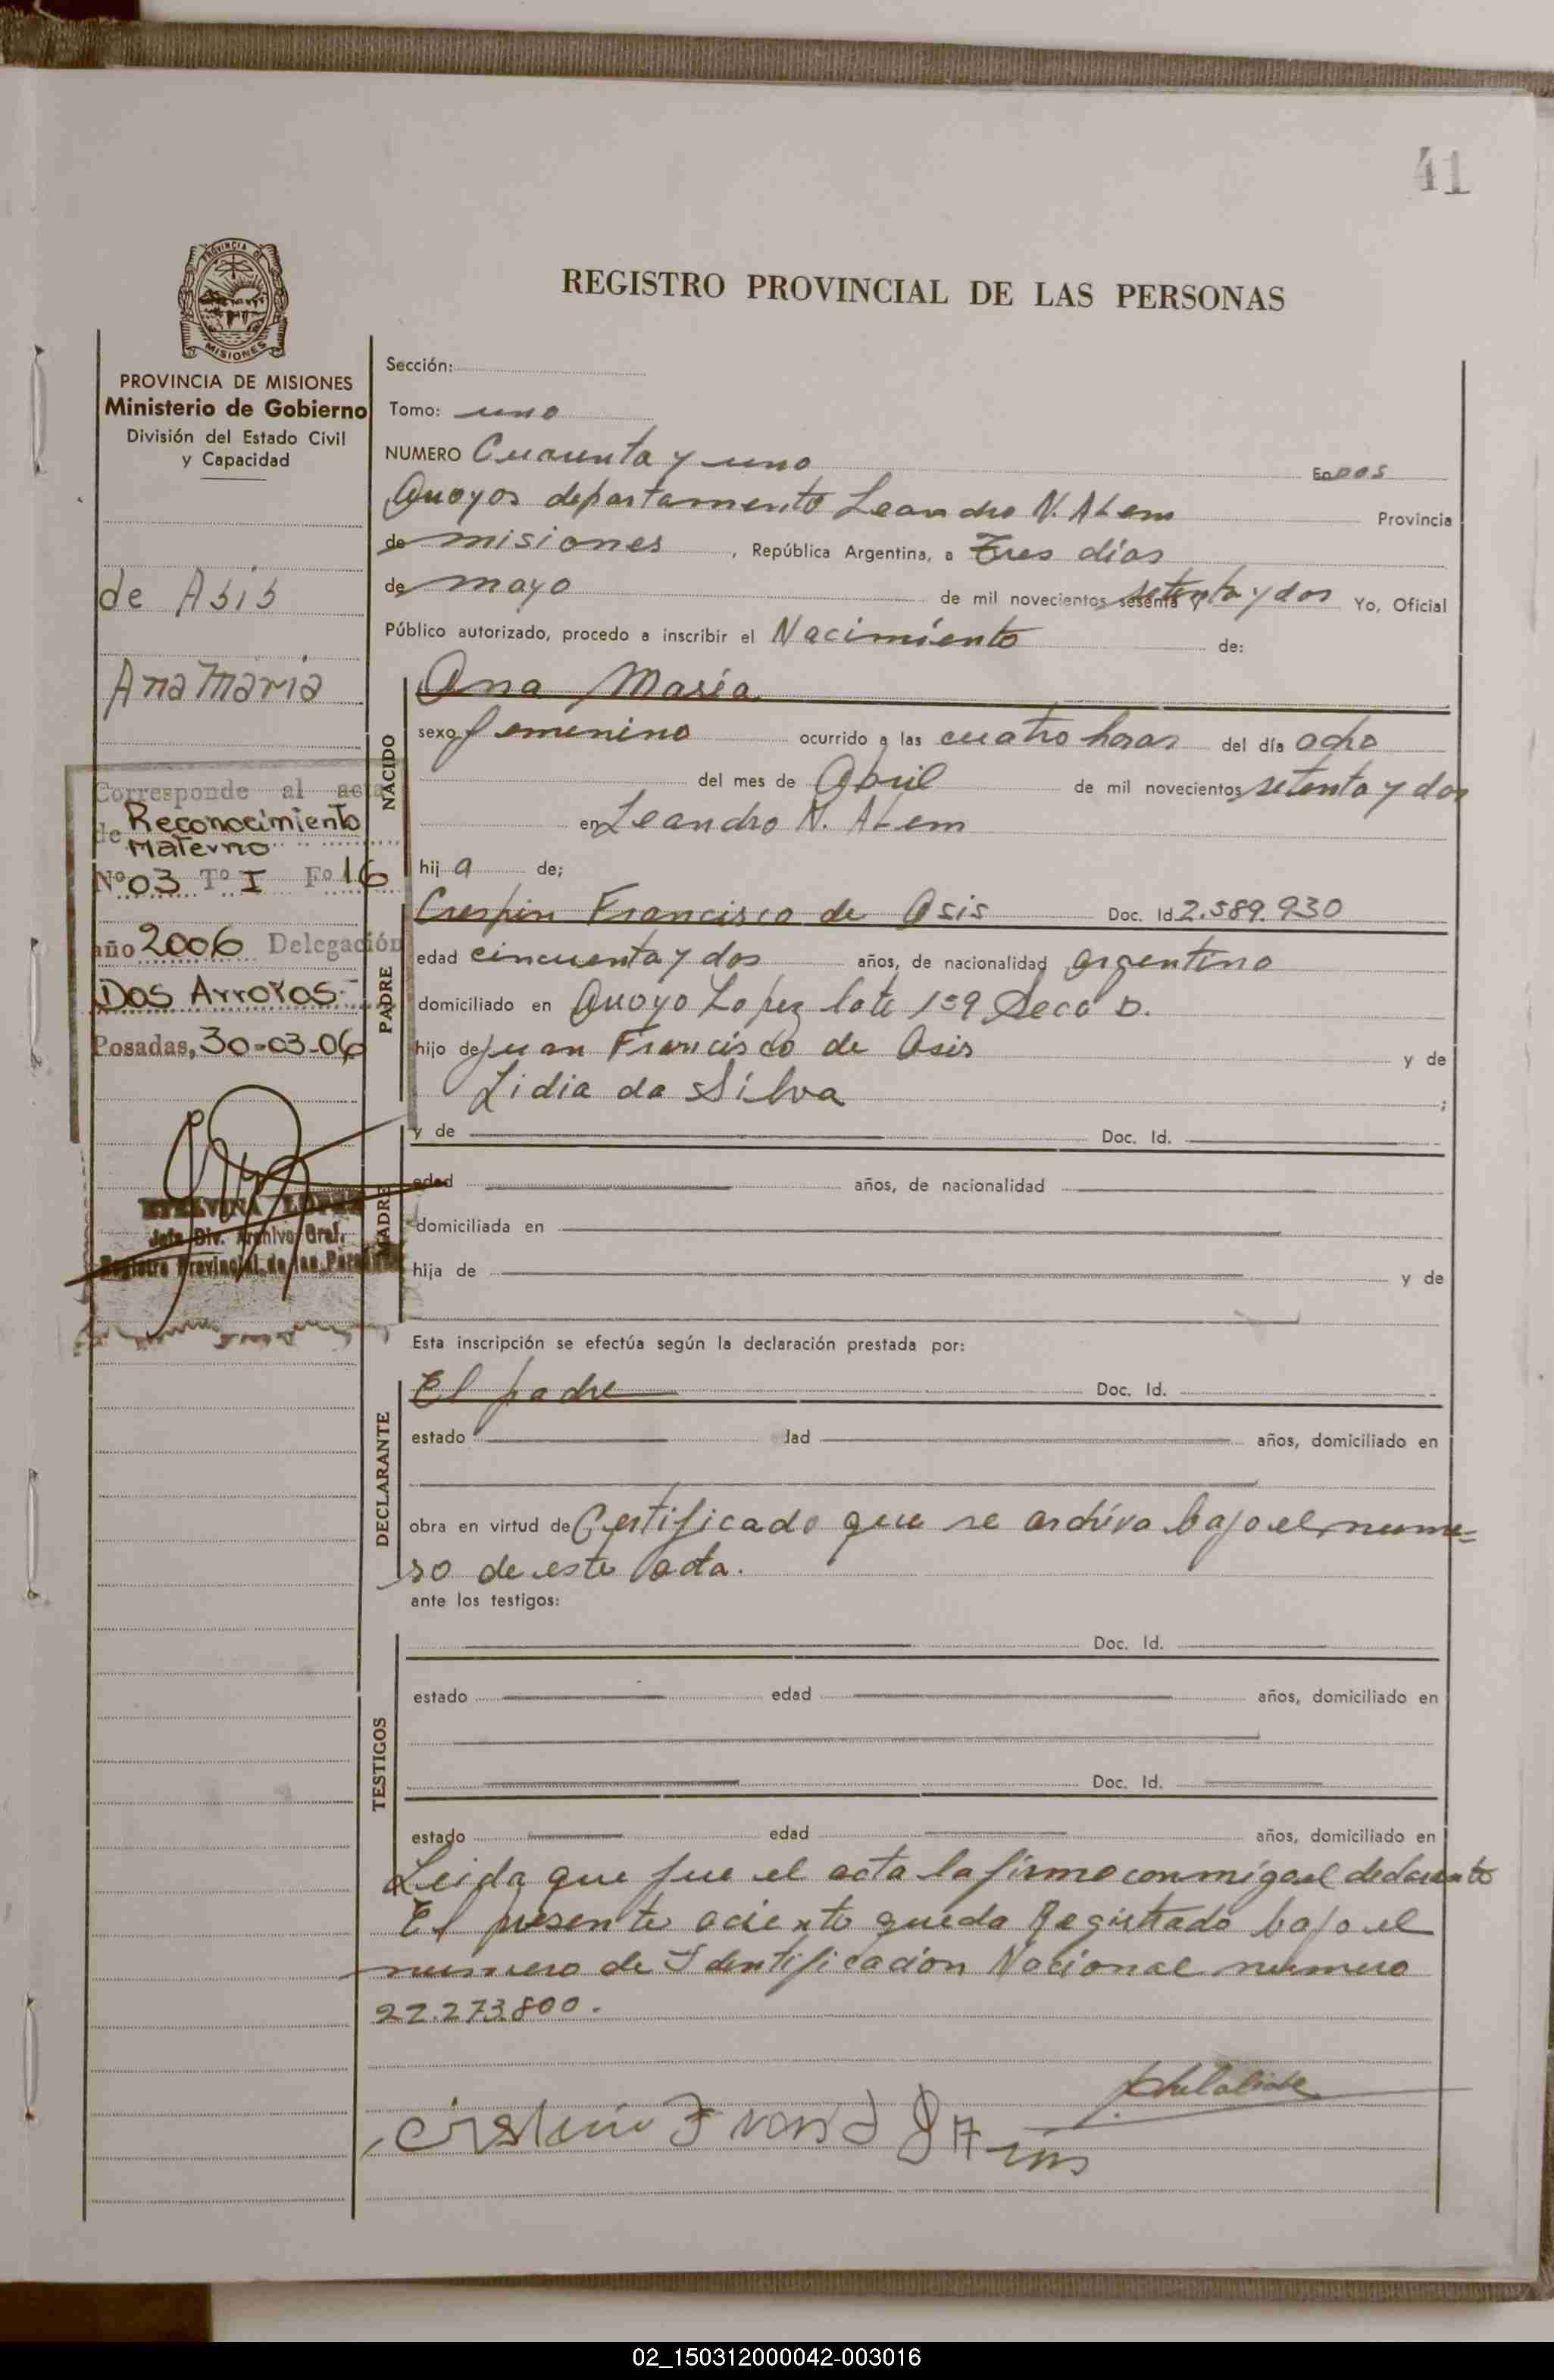 41
PROVINCIA DE
MISIONES
REGISTRO PROVINCIAL DE LAS PERSONAS
PROVINCIA DE MISIONES
Ministerio de Gobierno
División del Estado Civil
y Capacidad
de Asis
Ana Maria
Corresponde al acta
de Reconocimiento
Materno
Nº 03 Tº I Fº 16
año 2006 Delegación
Dos Arroyos.-
Posadas, 30-03-06
ETELVINA LOPEZ
Jefe Div. Archivo Gral.
Registro Provincial de las Personas
Sección:
Tomo: uno
NUMERO Cuarenta y uno En DOS
Arroyos departamento Leandro N. Alem Provincia
de misiones, República Argentina, a Tres días
de mayo de mil novecientos sesenta y setenta y dos Yo, Oficial
Público autorizado, procedo a inscribir el Nacimiento de:
NACIDO
Ana María
sexo femenino ocurrido a las cuatro horas del día ocho
del mes de Abril de mil novecientos setenta y dos
en Leandro N. Alem
hija de;
PADRE
Crespin Francisco de Asis Doc. Id. 2.589.930
edad cincuenta y dos años, de nacionalidad argentino
domiciliado en Arroyo Lopez lote 159 Secc D.
hijo de Juan Francisco de Asis y de
Lidia da Silva ;
MADRE
y de Doc. Id.
edad años, de nacionalidad
domiciliada en
hija de y de
Esta inscripción se efectúa según la declaración prestada por:
DECLARANTE
El padre Doc. Id.
estado dad años, domiciliado en
obra en virtud de Certificado que se archiva bajo el nume=
ro de este acta.
ante los testigos:
TESTIGOS
Doc. Id.
estado edad años, domiciliado en
Doc. Id.
estado edad años, domiciliado en
Leida que fue el acta la firma conmigo el declarante
El presente aciento queda Registrado bajo el
numero de Identificacion Nacional numero
22.273.800.
02_150312000042-003016